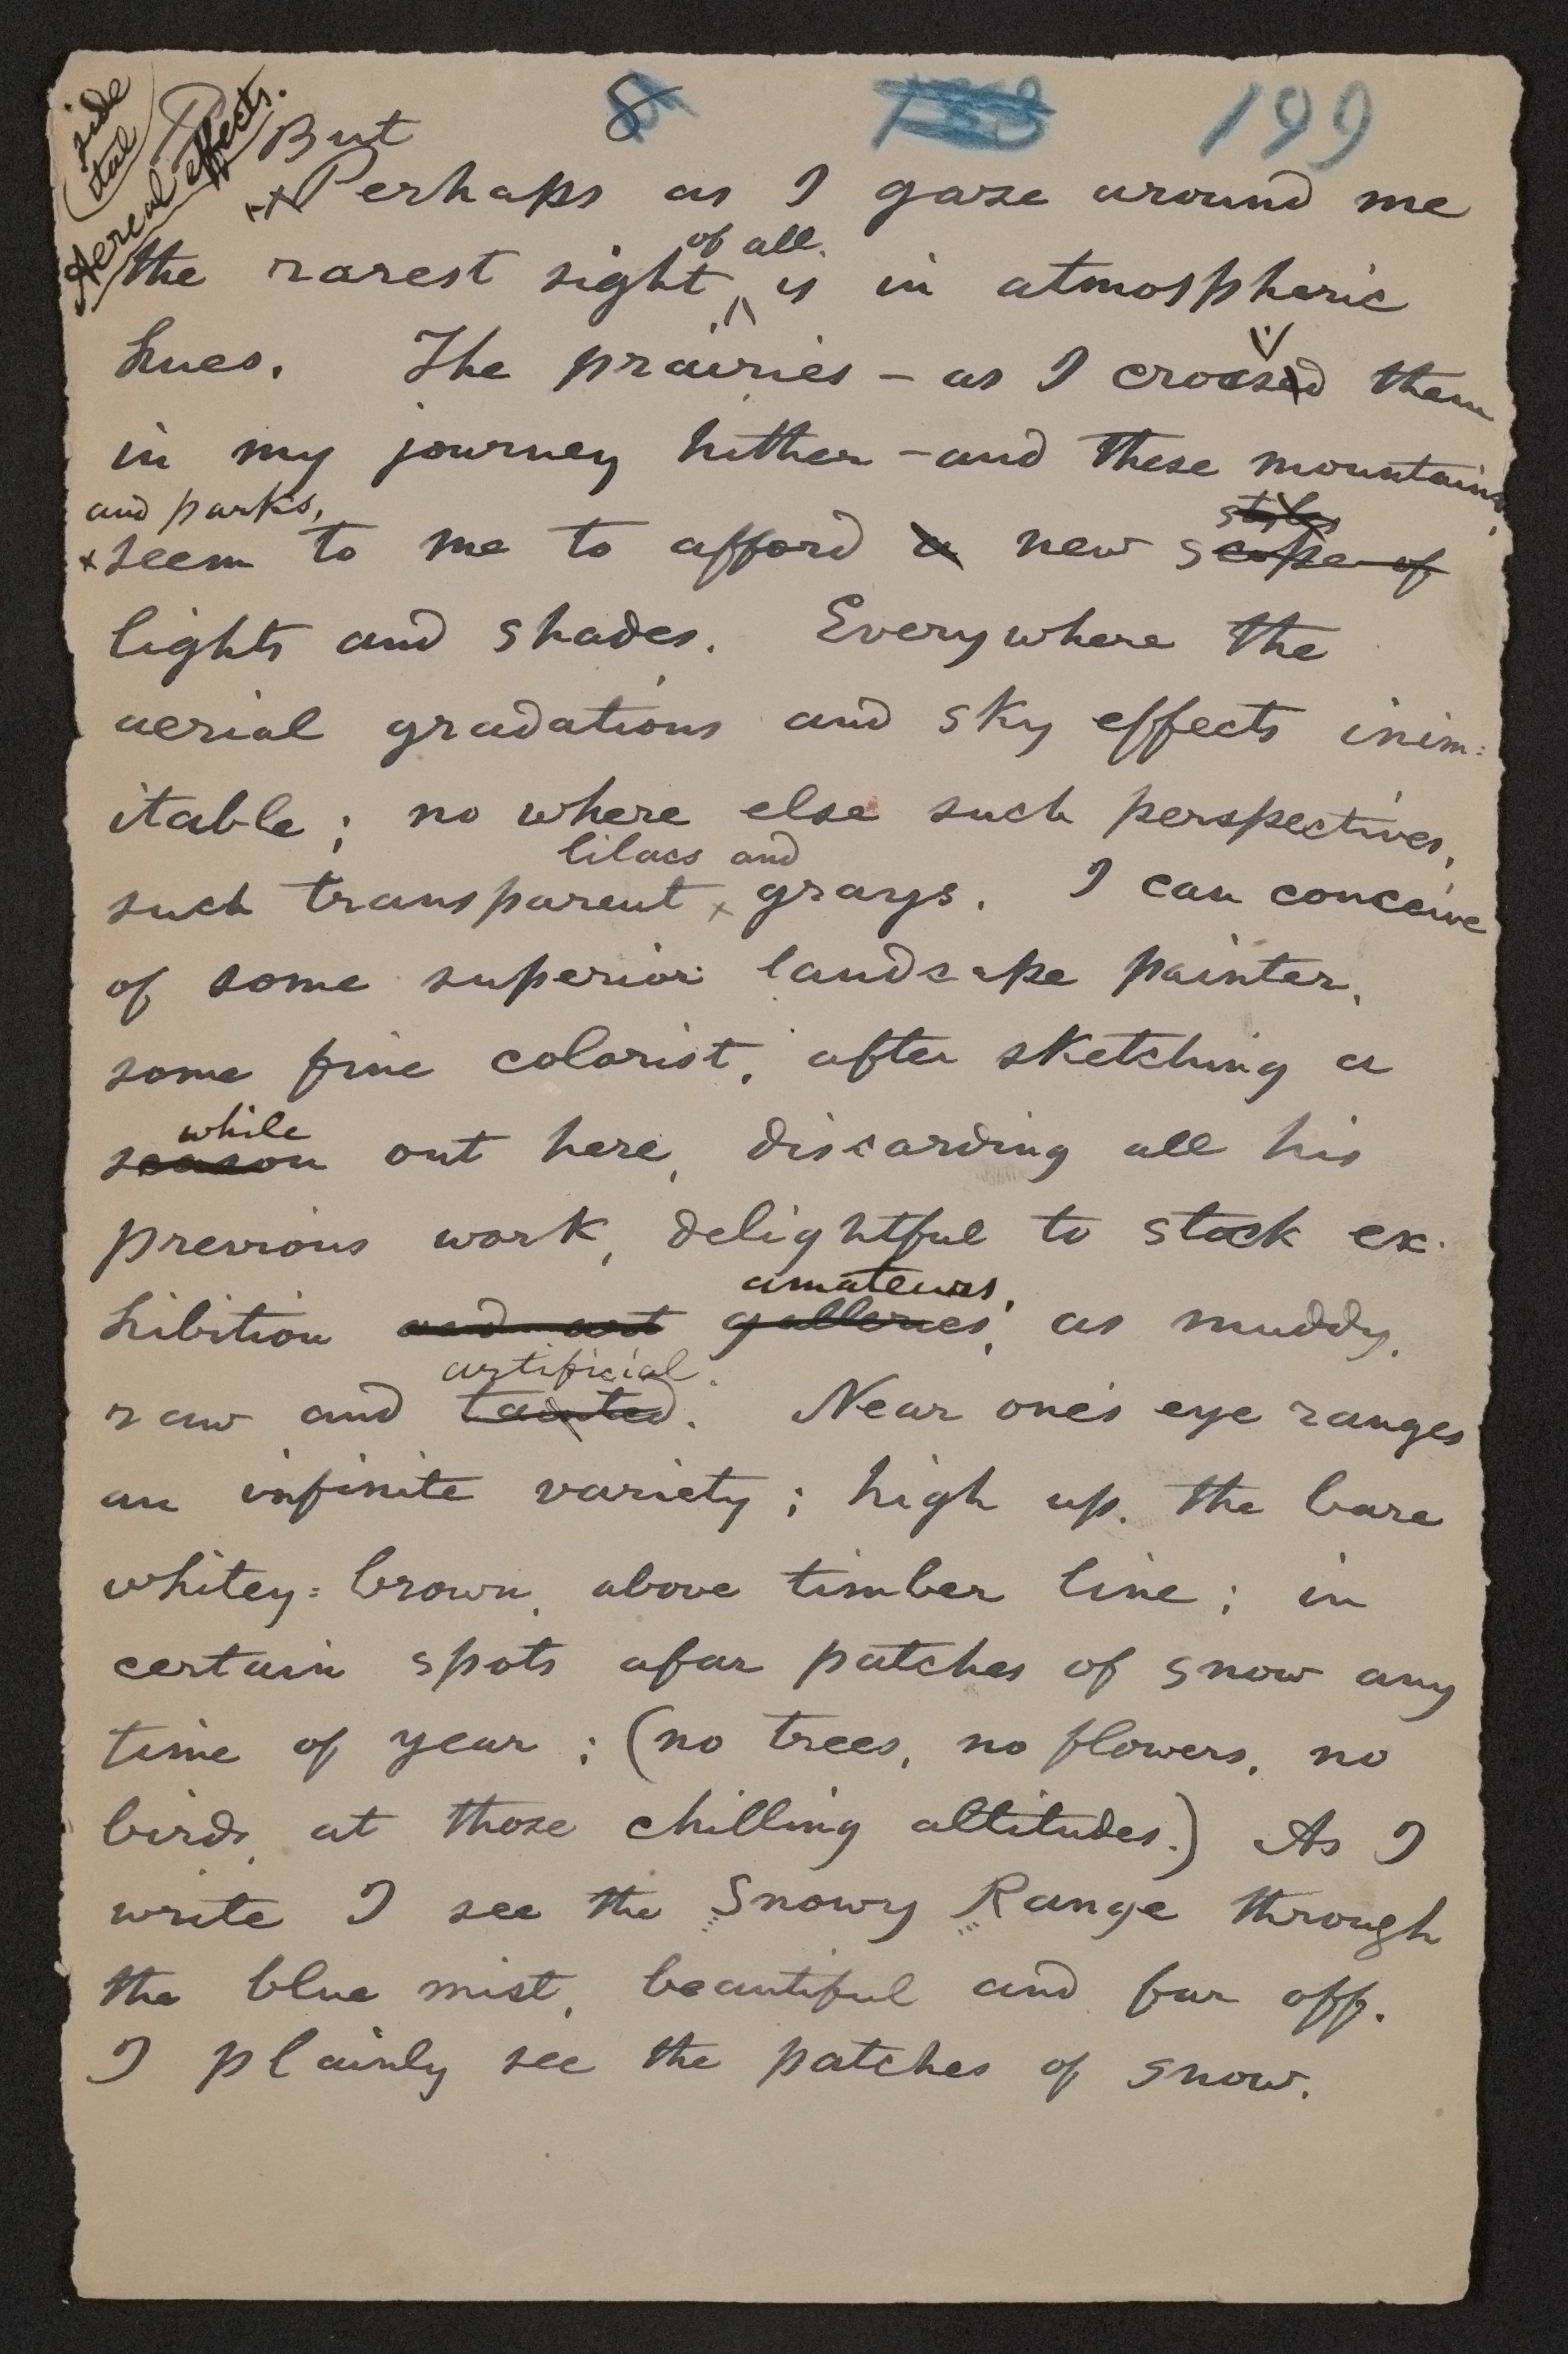 side
ital
Aereal effects.
8 199
But
Perhaps as I gaze around me
of all
the rarest sight is in atmospheric
hues. The prairies – as I crossed them
in my journey hither – and these mountains
and parks,
seem to me to afford a new scope of
lights and shades. Everywhere the
aerial gradations and sky effects inim=
itable; no where else such perspectives,
lilacs and
such transparent grays. I can conceive
of some superior landscape painter,
some fine colorist, after sketching a
while
season out here, discarding all his
previous work, delightful to stock ex-
amateurs,
hibition and art galleries, as muddy,
artificial.
raw and tainted. Near one's eye ranges
an infinite variety; high up, the bare
whitey=brown, above timber line; in
certain spots afar patches of snow any
time of year; (no trees, no flowers, no
birds, at those chilling altitudes.) As I
write I see the Snowy Range through
the blue mist, beautiful and far off.
I plainly see the patches of snow.